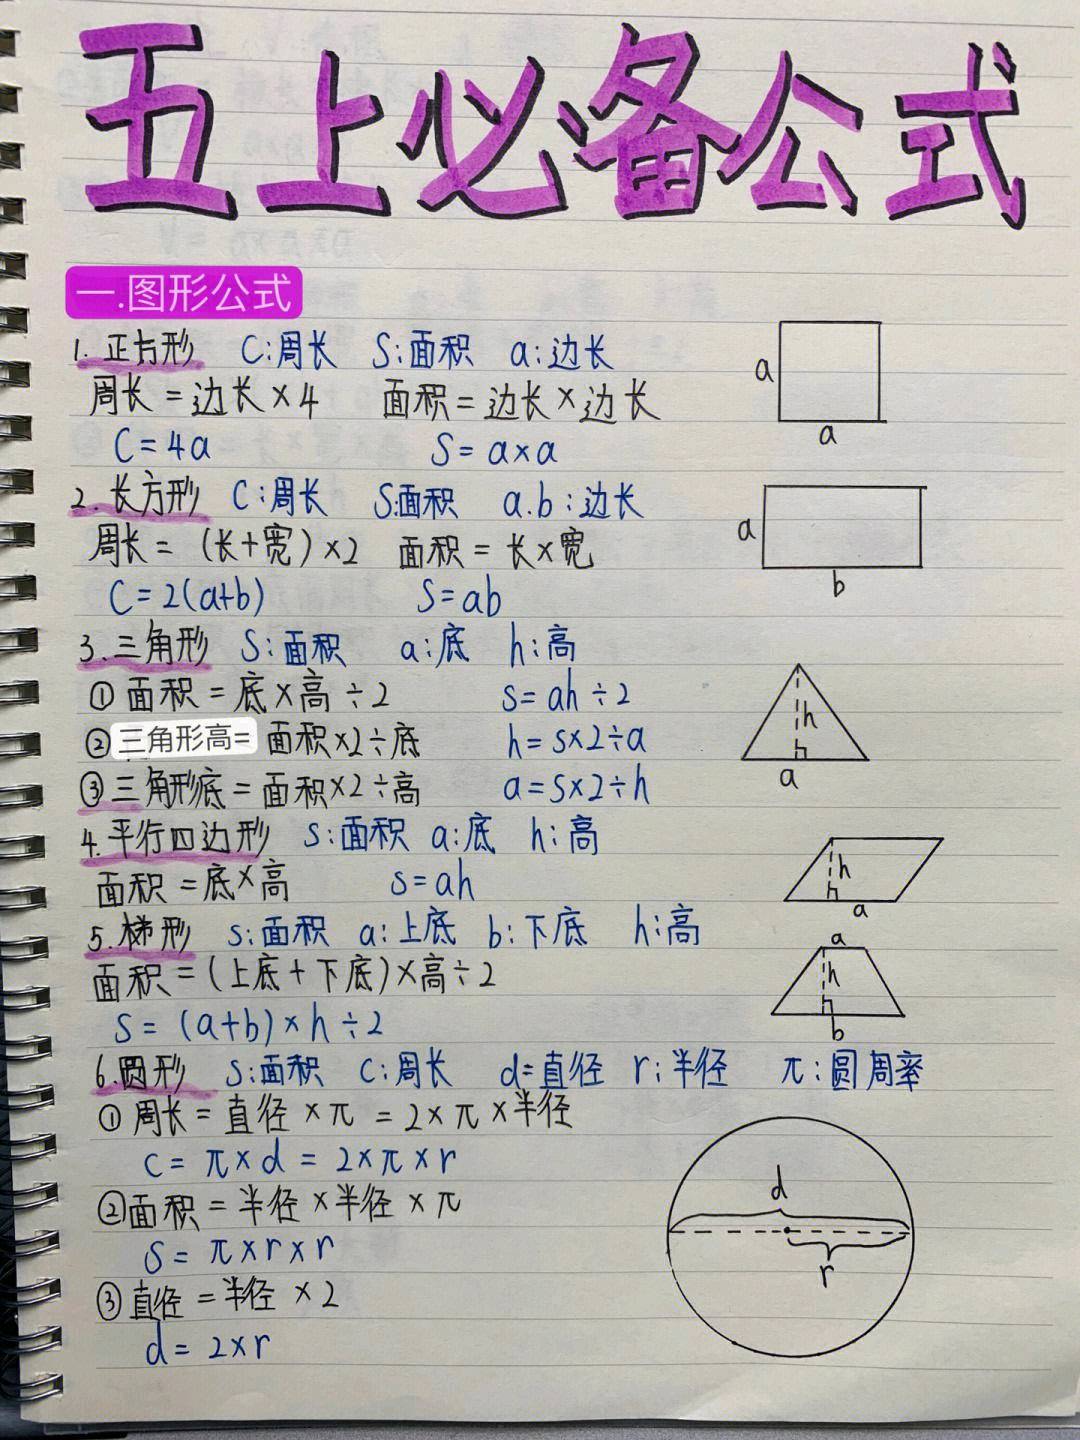 五上必备公式
一.图形公式
1.正方形 C:周长 S:面积 a:边长
周长=边长×4 面积=边长×边长
C=4a S=a×a
a
a
2.长方形 C:周长 S:面积 a.b:边长
周长=(长+宽)×2 面积=长×宽
C=2(a+b) S=ab
a
b
3.三角形 S:面积 a:底 h:高
①面积=底×高÷2 S=ah÷2
②三角形高=面积×2÷底 h=S×2÷a
③三角形底=面积×2÷高 a=S×2÷h
h
a
4.平行四边形 S:面积 a:底 h:高
面积=底×高 S=ah
h
a
5.梯形 S:面积 a:上底 b:下底 h:高
面积=(上底+下底)×高÷2
S=(a+b)×h÷2
a
h
b
6.圆形 S:面积 C:周长 d=直径 r:半径 π:圆周率
①周长=直径×π=2×π×半径
C=π×d=2×π×r
②面积=半径×半径×π
S=π×r×r
③直径=半径×2
d=2×r
d
r